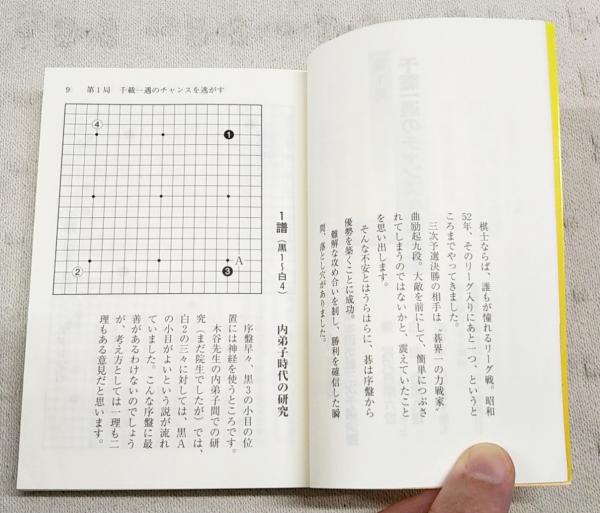 棋士ならば、誰もが憧れるリーグ戦。昭和
52年、そのリーグ入りにあと一つ、というと
ころまでやってきました。
三次予選決勝の相手は〝碁界一の力戦家〟
曲励起九段。大敵を前にして、簡単につぶさ
れてしまうのではないかと、震えていたこと
を思い出します。
そんな不安とはうらはらに、碁は序盤から
優勢を築くことに成功。
難解な攻め合いを制し、勝利を確信した瞬
間、落とし穴がありました。
9 第1局 千載一遇のチャンスを逃がす
④
❶
A
②
❸
1譜(黒1〜白4) 内弟子時代の研究
序盤早々、黒3の小目の位
置には神経を使うところです。
木谷先生の内弟子間での研
究(まだ院生でしたが)では、
白2の三々に対しては、黒A
の小目がよいという説が流れ
ていました。こんな序盤に最
善があるわけないのでしょう
が、考え方としては一理も二
理もある意見だと思います。